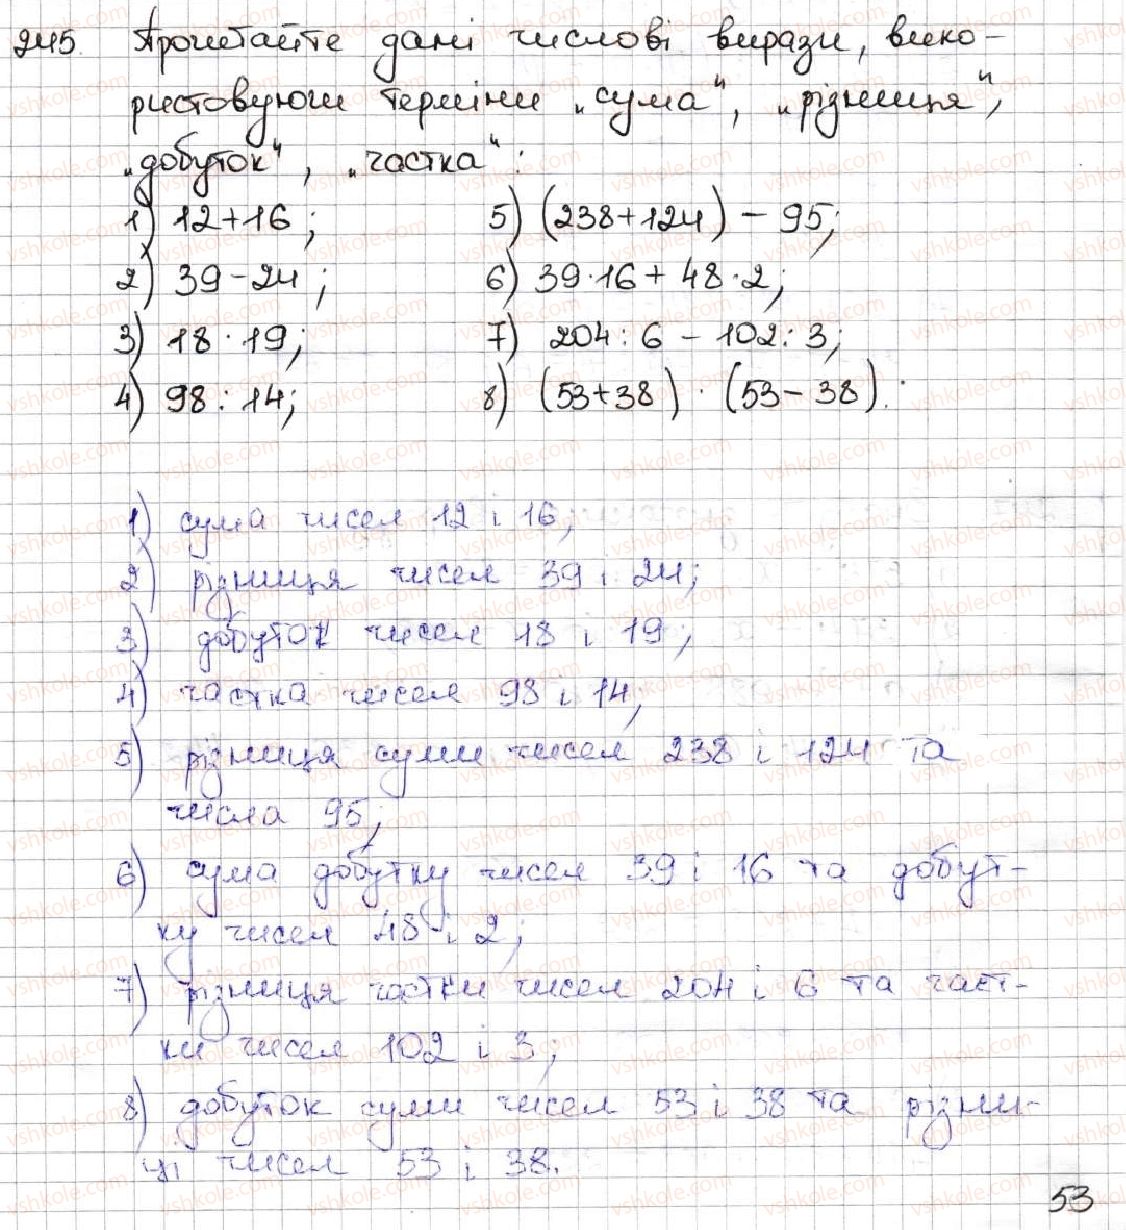 245. Прочитайте дані числові вирази, вико-
ристовуючи терміни „сума", „різниця",
„добуток", „частка":
1) 12+16; 5) (238+124) - 95;
2) 39-24; 6) 39·16 + 48·2;
3) 18·19; 7) 204:6 - 102:3;
4) 98:14; 8) (53+38)·(53-38).
1) сума чисел 12 і 16;
2) різниця чисел 39 і 24;
3) добуток чисел 18 і 19;
4) частка чисел 98 і 14;
5) різниця суми чисел 238 і 124 та
числа 95;
6) сума добутку чисел 39 і 16 та добут-
ку чисел 48 і 2;
7) різниця частки чисел 204 і 6 та част-
ки чисел 102 і 3;
8) добуток суми чисел 53 і 38 та різни-
ці чисел 53 і 38.
53